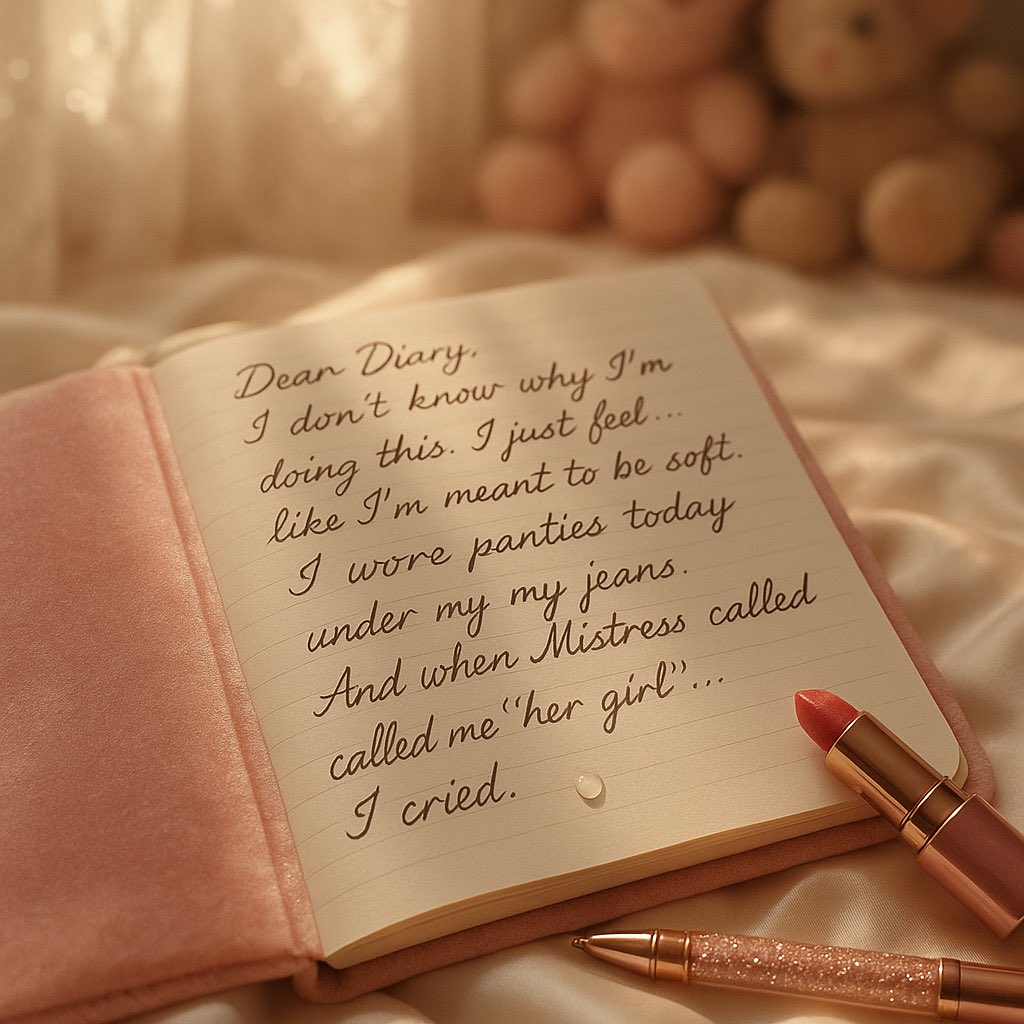 Dear Diary,
I don't know why I'm
doing this. I just feel...
like I'm meant to be soft.
I wore panties today
under my my jeans.
And when Mistress called
called me "her girl"...
I cried.